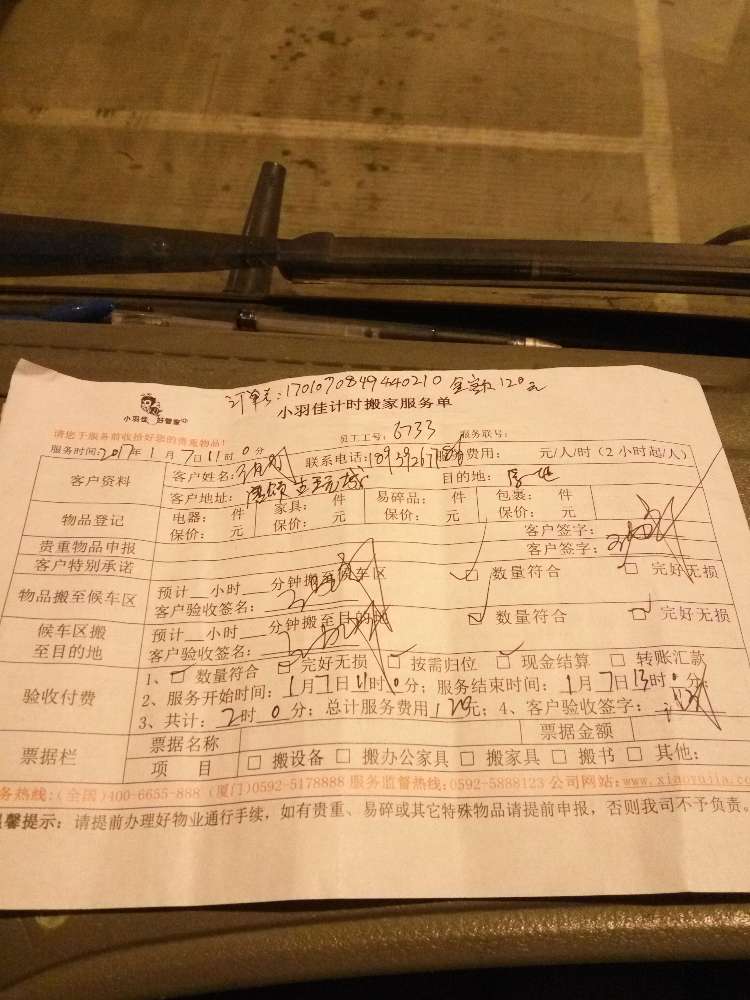 订单号：1701070849440210 金额120元
小羽佳 好管家
小羽佳计时搬家服务单
请您于服务前收拾好您的贵重物品！
员工工号：6733 服务联号：
服务时间：2017年1月7日11时0分 联系电话： 服务费用： 元/人/时（2小时起/人）
客户资料 客户姓名： 目的地：
客户地址：
物品登记 电器： 件 家具： 件 易碎品： 件 包装： 件
保价： 元 保价： 元 保价： 元 保价： 元
贵重物品申报 客户签字：
客户特别承诺 客户签字：
物品搬至候车区 预计__小时__分钟搬至候车区 ☑ 数量符合 □ 完好无损
客户验收签名：
候车区搬至目的地 预计__小时__分钟搬至目的地 ☑ 数量符合 ☑ 完好无损
客户验收签名：
验收付费 1、☑ 数量符合 ☑ 完好无损 ☑ 按需归位 ☑ 现金结算 □ 转账汇款
2、服务开始时间：1月7日11时0分；服务结束时间：1月7日13时0分；
3、共计：2时0分；总计服务费用120元；4、客户验收签字：
票据栏 票据名称 票据金额
项 目 □ 搬设备 □ 搬办公家具 □ 搬家具 □ 搬书 □ 其他：
务热线：(全国)400-6655-888 (厦门)0592-5178888 服务监督热线：0592-5888123 公司网站：www.xiaoyujia.com
温馨提示：请提前办理好物业通行手续，如有贵重、易碎或其它特殊物品请提前申报，否则我司不予负责。